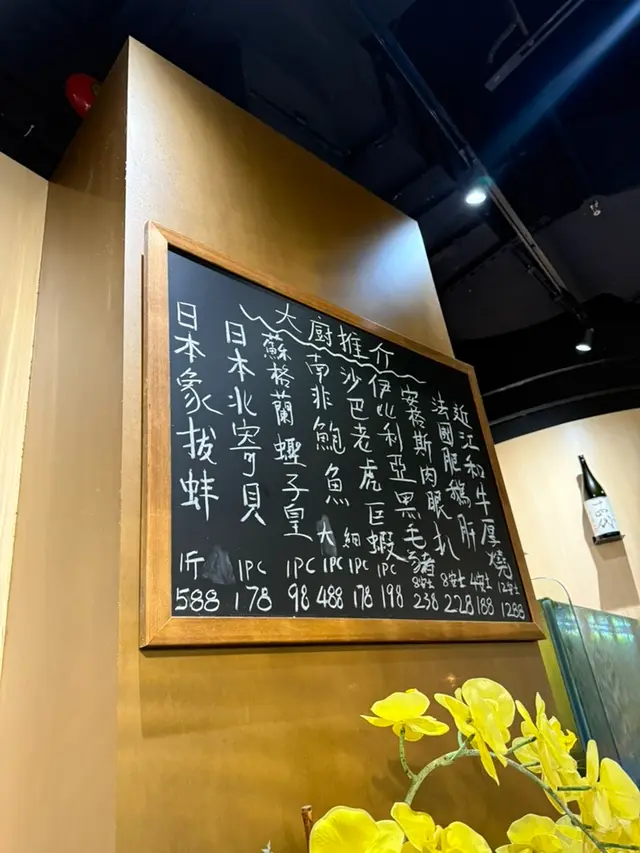 大厨推介
近江和牛厚燒 12安士 1288
法國肥鵝肝 4安士 188
安格斯肉眼扒 8安士 228
伊比利亞黑毛豬 8安士 238
沙巴老虎巨蝦 1PC 198
南非鮑魚 大 1PC 488 細 1PC 178
蘇格蘭蟶子皇 1PC 98
日本北寄貝 1PC 178
日本象拔蚌 1斤 588
十四代